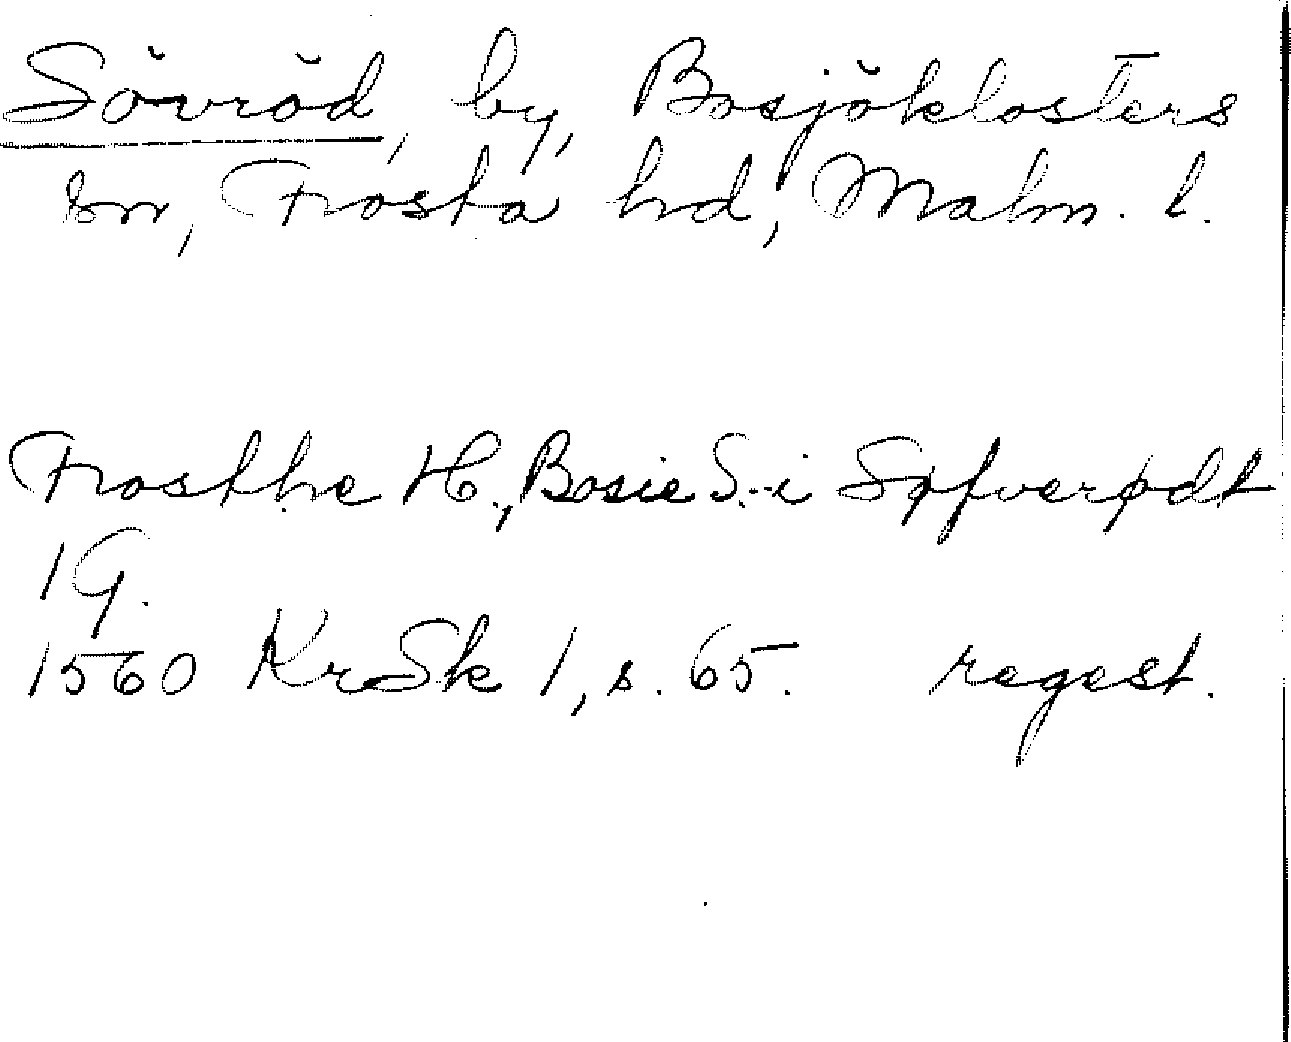 Sövröd, by, Bosjöklosters
sn, Frosta hd, Malm. l.
Frosthe H., Bosie S. i Søfverødt
1 G.
1560 KrSk 1, s. 65. regest.